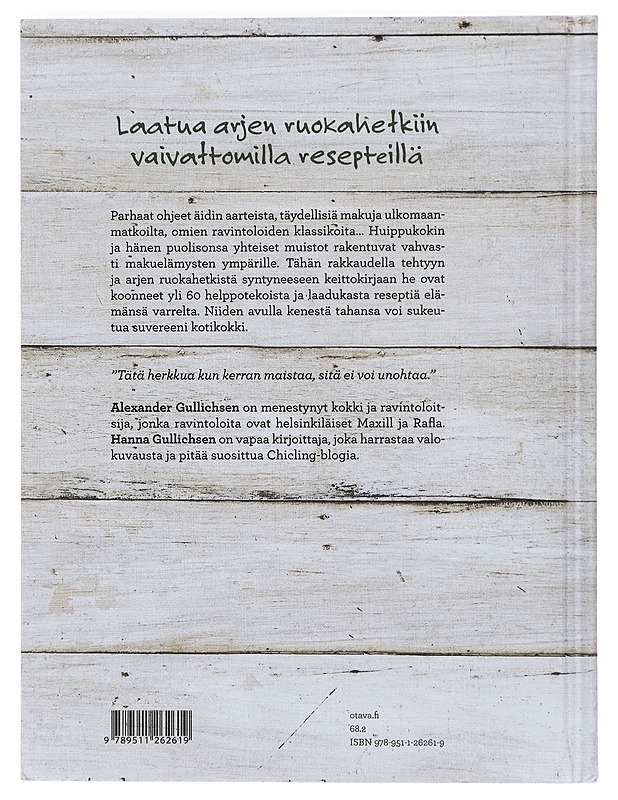 Laatua arjen ruokahetkiin
vaivattomilla resepteillä
Parhaat ohjeet äidin aarteista, täydellisiä makuja ulkomaan-
matkoilta, omien ravintoloiden klassikoita... Huippukokin
ja hänen puolisonsa yhteiset muistot rakentuvat vahvas-
ti makuelämysten ympärille. Tähän rakkaudella tehtyyn
ja arjen ruokahetkistä syntyneeseen keittokirjaan he ovat
koonneet yli 60 helppotekoista ja laadukasta reseptiä elä-
mänsä varrelta. Niiden avulla kenestä tahansa voi sukeu-
tua suvereeni kotikokki.
”Tätä herkkua kun kerran maistaa, sitä ei voi unohtaa.”
Alexander Gullichsen on menestynyt kokki ja ravintoloit-
sija, jonka ravintoloita ovat helsinkiläiset Maxill ja Rafla.
Hanna Gullichsen on vapaa kirjoittaja, joka harrastaa valo-
kuvausta ja pitää suosittua Chicling-blogia.
otava.fi
68.2
ISBN 978-951-1-26261-9
9 789511 262619